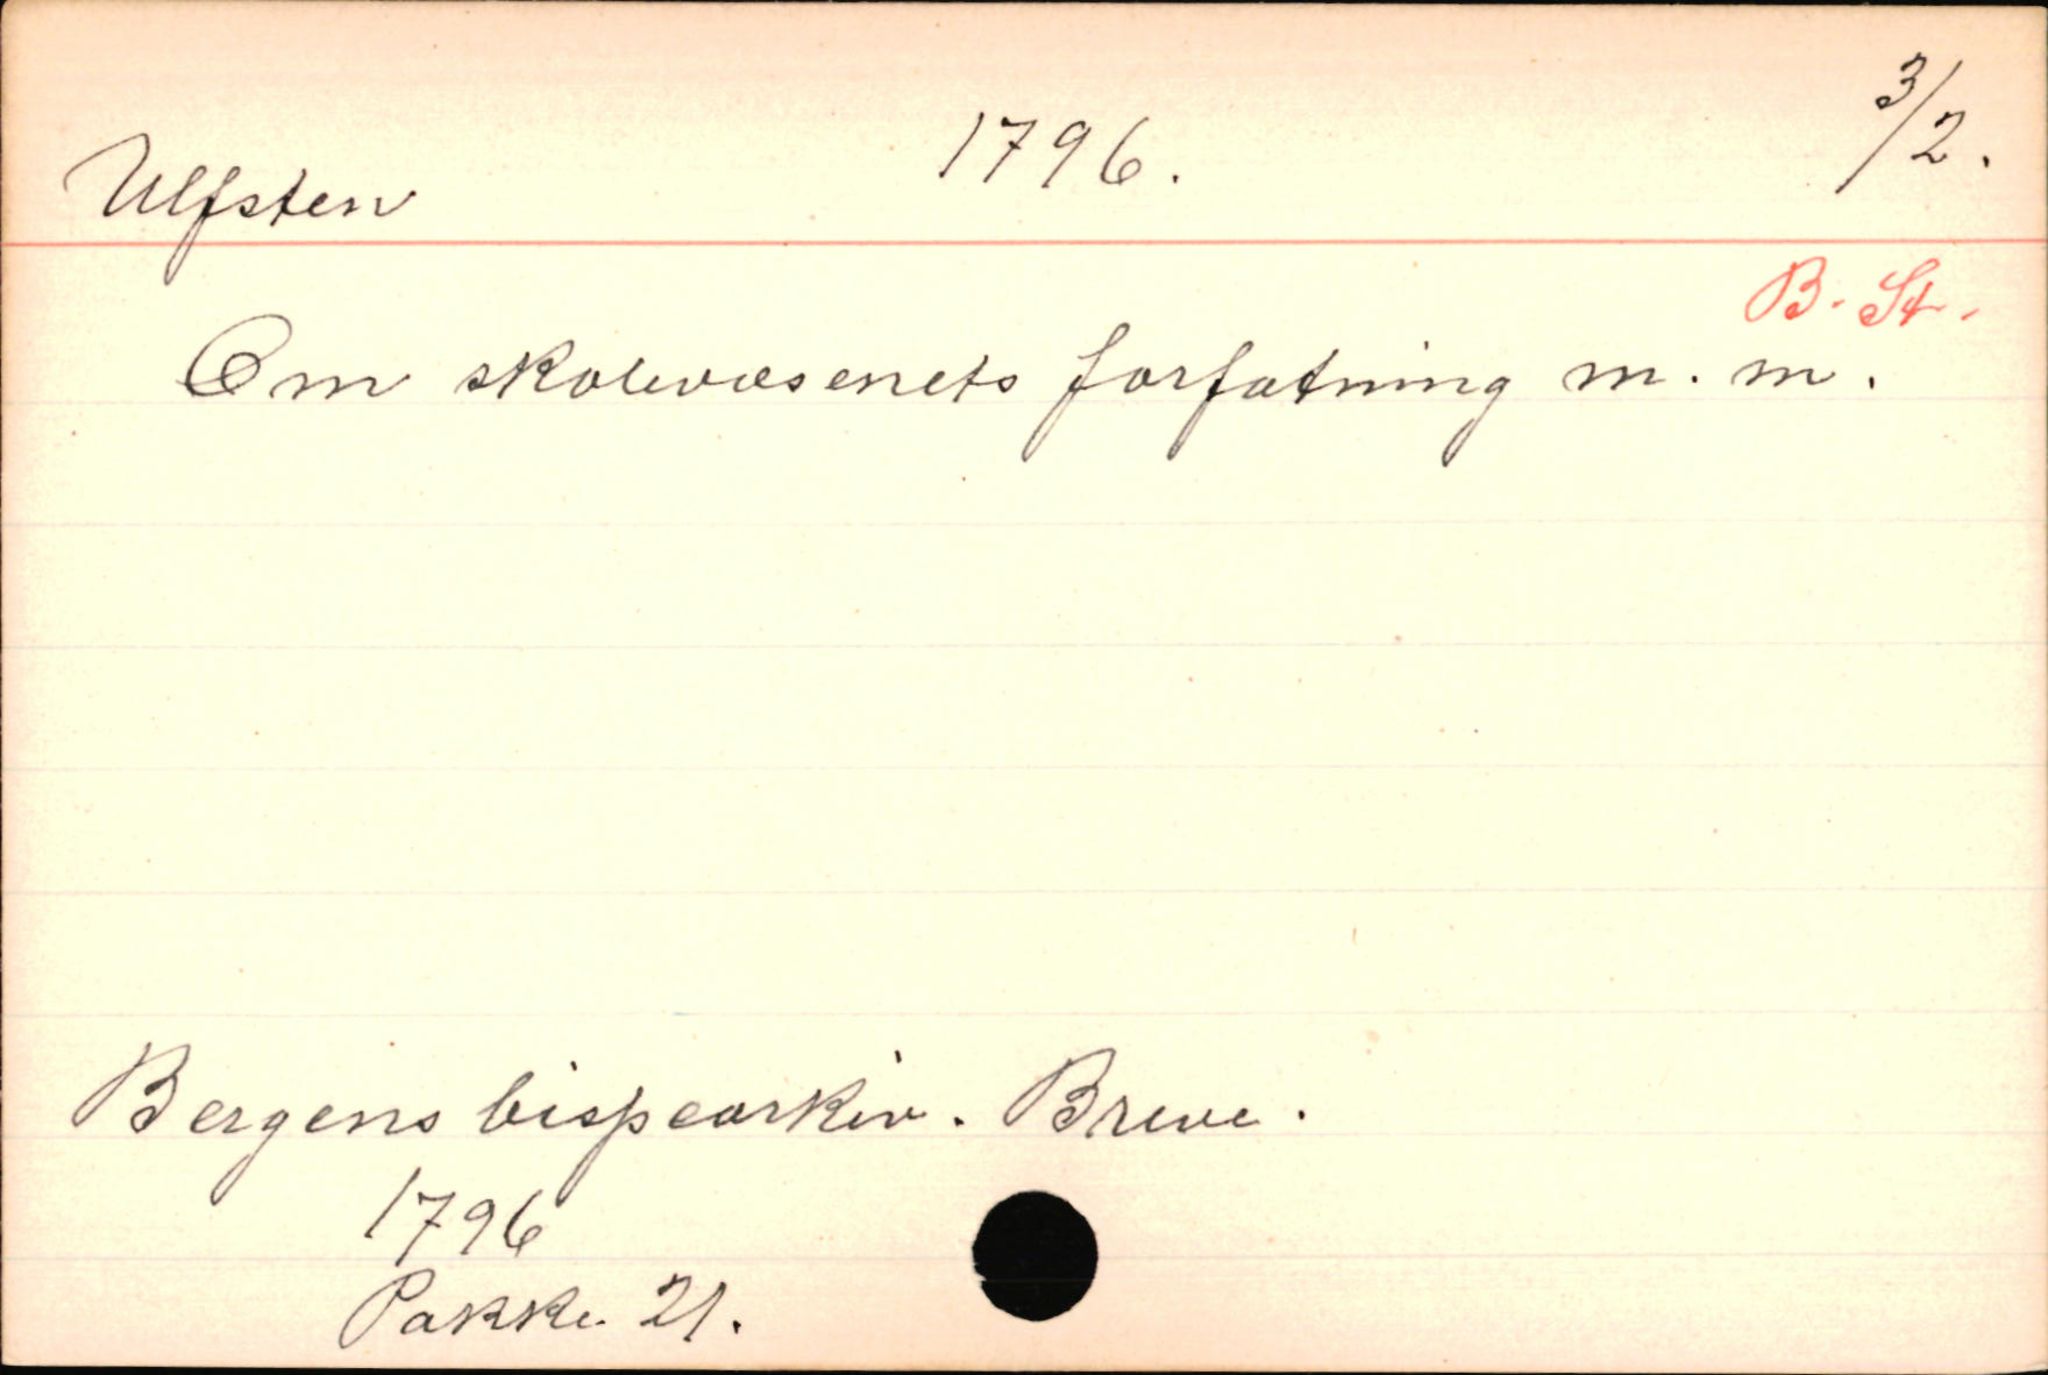 Ulfsten 1796. 3/2.
B. St.
Om skolevæsenets forfatning m. m.
Bergens bispearkiv. Breve.
1796
Pakke 21.